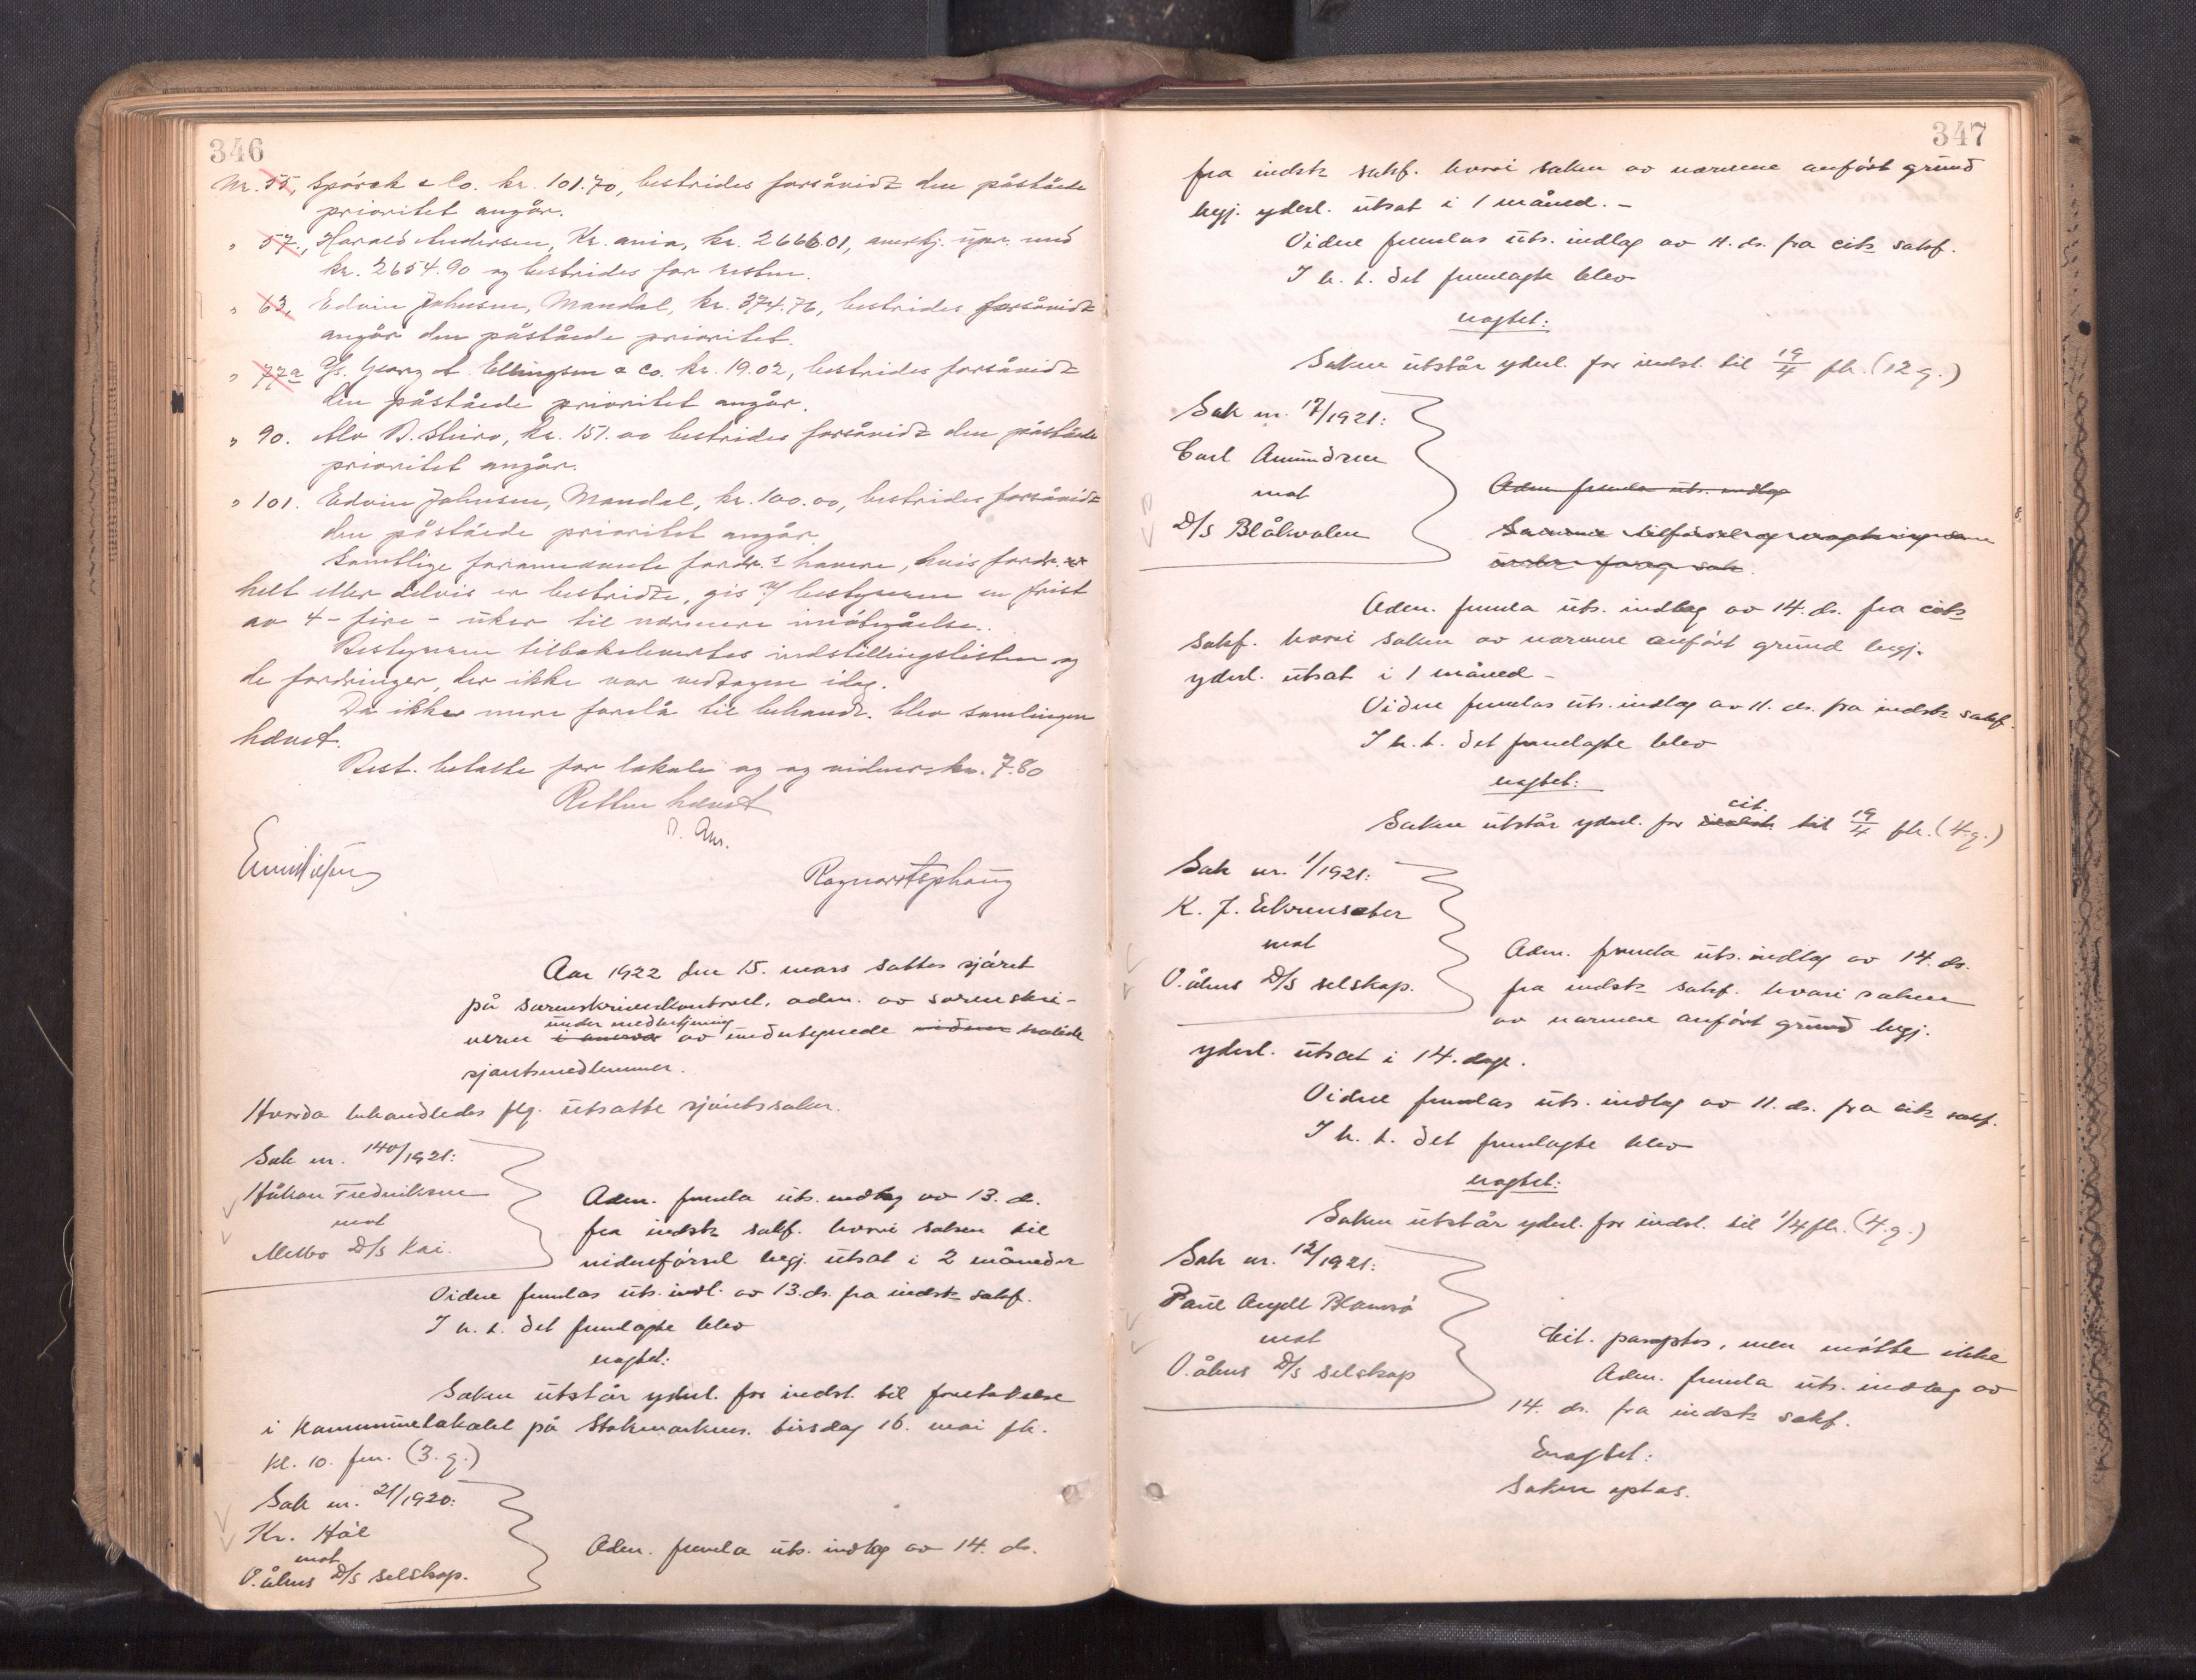 346
Nr. 55, Spörck & Co. kr. 101.70, bestrides forsåvidt den påståede
prioritet angår.
" 57., Harald Andersen, Kr.ania, kr. 2666.01, anerkj. upr. med
kr. 2654.90 og bestrides for resten.
" 63, Edvin Johnsen, Mandal, kr. 374.76, bestrides forsåvidt
angår den påståede prioritet.
" 77a Georg A. Ellingsen & Co. kr. 19.02, bestrides forsåvidt
den påståede prioritet angår.
" 90. kr. 151.00 bestrides forsåvidt den påståede
prioritet angår.
" 101. Edvin Johnsen, Mandal, kr. 100.00, bestrides forsåvidt
den påståede prioritet angår.
Samtlige forannævnte fordr.s havere, hvis fordr. er
helt eller delvis er bestridt, gis v/ bestyreren en frist
av 4 - fire - uker til nærmere imøtegåelse.
Bestyreren tilbakelevertes indstillingslisten og
de fordringer, der ikke var vedtagne idag.
Da ikke mere forelå til behandl. blev samlingen
hævet.
Best. betalte for lokale og og vidner kr. 7.80
Retten hævet
Aar 1922 den 15. mars sattes sjöret
på sorenskriverkontoret, adm. av sorenskri-
under medbetjening
veren i anvær av undertegnede vidner
sjöretsmedlemmer.
Hvorda behandledes flg. utsatte sjöretssaker.
Sak nr. 140/1921:
Håkon Fredriksen
mot
Melbo D/s Kai.
Adm. fremla uts. indlæg av 13. ds.
fra indstr sakf. hvori saken til
vidneførsel begj. utsat i 2 måneder
Vidne fremlas uts. indl. av 13. ds. fra indstr sakf.
I h. t. det fremlagte blev
vragtet:
Saken utstår yderl. for indst. til foretakelse
i kommunelokalet på Stokmarknes. tirsdag 16. mai fk.
kl. 10. fm. (3. g.)
Sak nr. 21/1920:
Kr. Höl
mot
V.ålens D/s selskap.
Adm. fremla uts. indlæg av 14. ds.
347
fra indstr sakf. hvori saken av nærmere anført grund
begj. yderl. utsat i 1 måned. -
Vidne fremlas uts. indlæg av 11. ds. fra citr sakf.
I h. t. det fremlagte blev
vragtet:
Saken utstår yderl. for indst. til 19/4 fk. (12 g.)
Sak nr. 17/1921:
Carl Amundsen
mot
D/s Blåhvalen
Adm. fremla uts. indlæg
under forrig sak.
Adm. fremla uts. indlæg av 14. ds. fra citr
sakf. hvori saken av nærmere anført grund begj.
yderl. utsat i 1 måned -
Vidne fremlas uts. indlæg av 11. ds. fra indstr sakf.
I h. t. det fremlagte blev
vragtet:
cit.
Saken utstår yderl. for indst. til 19/4 fk. (4 g.)
Sak nr. 1/1921:
K. J. Ekrensæter
mot
V.ålens D/s selskap.
Adm. fremla uts. indlæg av 14. ds.
fra indstr sakf. hvori saken
av nærmere anført grund begj.
yderl. utsat i 14. dage.
Vidne fremlas uts. indlæg av 11. ds. fra citr sakf.
I h. t. det fremlagte blev
vragtet:
Saken utstår yderl. for indst. til 1/4 fk. (4. g.)
Sak nr. 12/1921:
Paul Angell
mot
V.ålens D/s selskap
Cit. paaroptes, men møtte ikke
Adm. fremla uts. indlæg av
14. ds. fra indstr sakf.
Eragtet:
Saken optas.